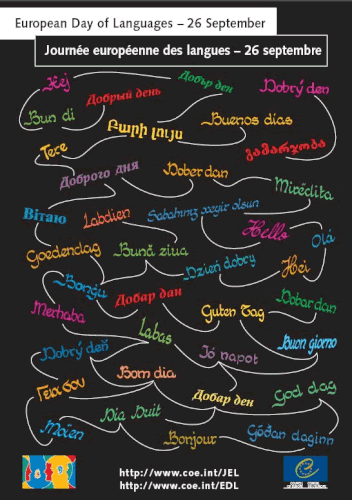 European Day of Languages – 26 September
Journée européenne des langues – 26 septembre
Hej
Добър ден
Dobrý den
Добрый день
Bun di
Բարի լույս
Buenos días
Tere
გამარჯობა
Доброго дня
Dober dan
Mirëdita
Вітаю
Labdien
Sabahınız xayir olsun
Hello
Olá
Goedendag
Bună ziua
Dzień dobry
Hei
Bonġu
Добар дан
Dobar dan
Merhaba
Guten Tag
Labas
Buon giorno
Dobrý deň
Jó napot
Bom dia
Γεια σου
Добар ден
God dag
Dia Duit
Moïen
Bonjour
Góðan daginn
http://www.coe.int/JEL
http://www.coe.int/EDL